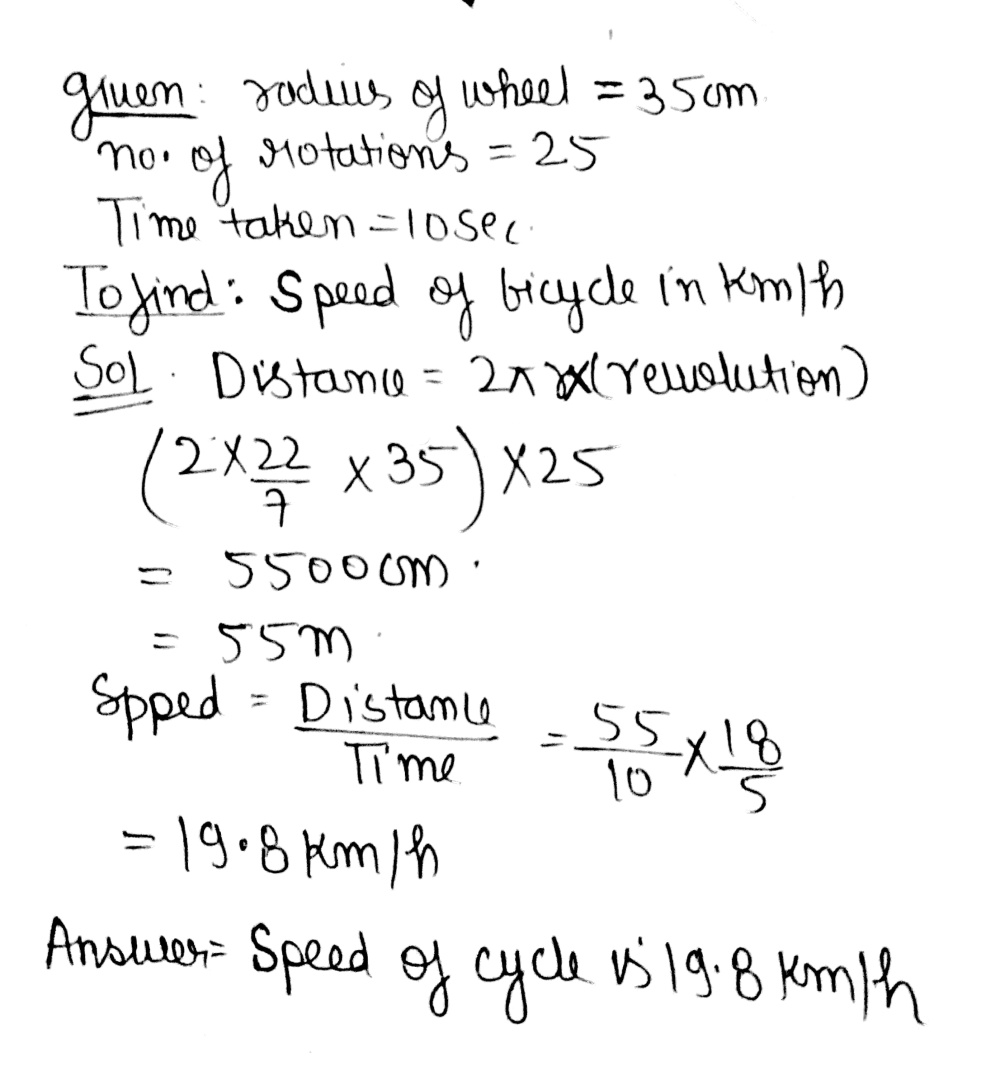 given: radius of wheel = 35cm
no. of rotations = 25
Time taken = 10 sec.
To find: Speed of bicycle in Km/h
Sol. Distance = 2πr×(revolution)
(2×22/7 × 35) ×25
= 5500cm.
= 55m.
Spped = Distance/Time = 55/10 × 18/5
= 19.8 Km/h
Answer= Speed of cycle is 19.8 Km/h